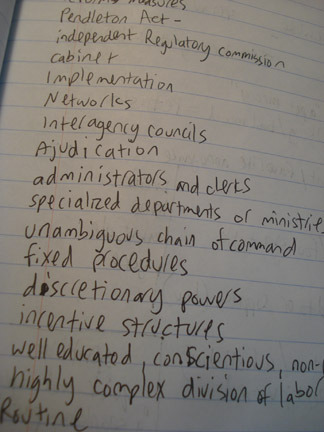 measures
Pendleton Act -
independent Regulatory commission
cabinet
Implementation
Networks
Interagency councils
Ajudication
administrators and clerks
specialized departments or ministrie
unambiguous chain of command
fixed procedures
discretionary powers
incentive structures
well educated, conscientious, non-
highly complex division of labor
Routine